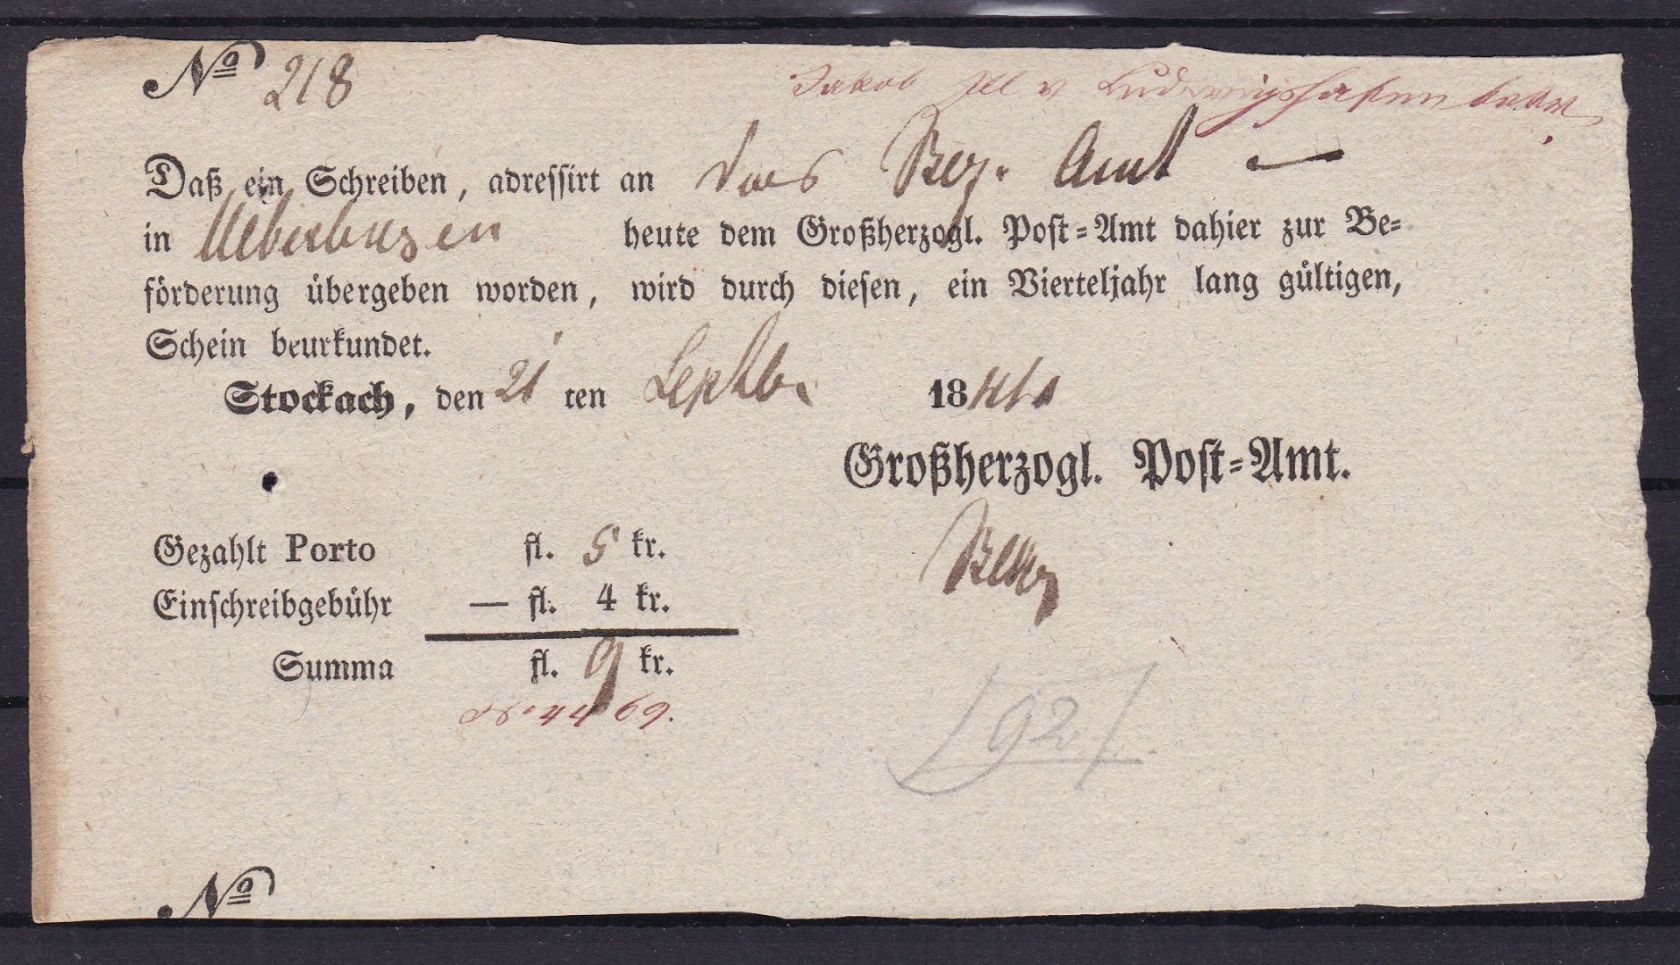 No 218
Jakob Ill v Ludwigshafen betr.
Daß ein Schreiben, adressirt an das Bez. Amt —
in Ueberlingen heute dem Großherzogl. Post-Amt dahier zur Be-
förderung übergeben worden, wird durch diesen, ein Vierteljahr lang gültigen,
Schein beurkundet.
Stockach, den 21 ten Septbr 18
Großherzogl. Post-Amt.
Gezahlt Porto fl. 5 kr.
Einschreibgebühr — fl. 4 kr.
Summa fl. 9 kr.
No 4469.
[92]
No